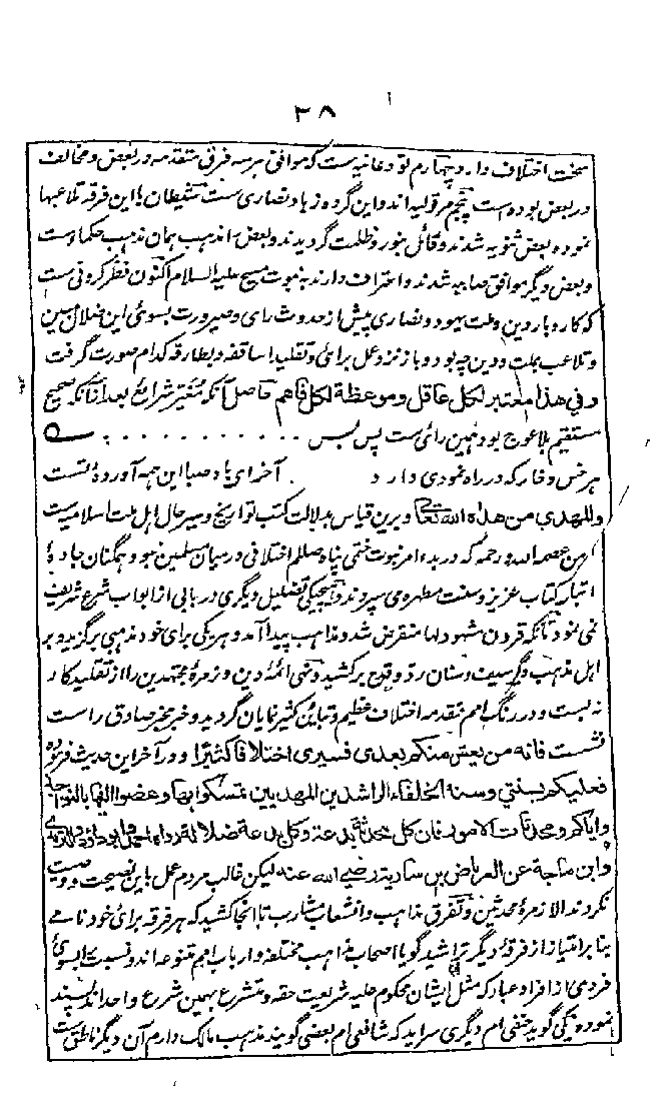 ۳۸
سخت اختلاف دارد چهارم نودعانیه است که موافق هر سه فرق متقدمه در بعض و مخالف
در بعض بوده است پنجم مرقولیه اند و این گروه زیاد نصاری ست شیطان با این فرقه تلاعبها
نموده بعض ثنویه شدند و قائل بنور و ظلمت گردیدند و بعض را مذهب همان مذهب حکماست
و بعض دیگر موافق صابیه شدند و اعتراف دارند به نبوت مسیح علیه السلام اکنون نظر کردنی ست
که کاروبار دین و ملت یهود و نصاری پیش از حدوث رای و صیرورت بسوئی این ضلال مبین
و تلاعب بملت و دین چه بود و باز نزد عمل برائی و تقلید اساقفه و بطارقه کدام صورت گرفت
و فی هذا معتبر لکل عاقل و موعظة لکل فاهم حاصل آنکه مغیر شرایع بعد از آنکه صحیح
مستقیم بلا عوج بود همین رائی ست پس بس
هر خس و خار که در راه نمودی دارد آخر ای باد صبا این همه آوردهٔ تست
والمهدی من هداه الله تعالی و برین قیاس بدلالت کتب تواریخ و سیر حال اهل ملت اسلامیه ست
الا من عصمه الله و رحمه که در بدء امر نبوت ختمی پناه صلعم اختلافی در میان مسلمین نبود و همگنان جادهٔ
اتباع کتاب عزیز و سنت مطهره می سپردند و هیچ یکی تضلیل دیگری در بابی از ابواب شرع شریف
نمی نمود تا آنکه قرون مشهود لها منقرض شد و مذاهب پیدا آمد و هر یکی برای خود مذهبی برگزید و بر
اهل مذهب دیگر سیف و سنان رد و قدح برکشید و حتی ائمهٔ دین و زمرهٔ مجتهدین را از تقلید کار
نه بست و در رنگ امم متقدمه اختلاف عظیم و تباین کثیر نمایان گردید و خبر مخبر صادق راست
نشست فانه من یعش منکم بعدی فسیری اختلافا کثیرا و در آخر این حدیث فرموده
فعلیکم بسنتی و سنة الخلفاء الراشدین المهدیین تمسکوا بها و عضوا علیها بالنواجذ
و ایاکم و محدثات الامور فان کل محدثة بدعة و کل بدعة ضلالة رواه احمد و ابو داؤد والترمذی
و ابن ماجة عن العرباض بن ساریة رضی الله عنه لیکن غالب مردم عمل باین نصیحت و وصیت
نکردند الا زمرهٔ محدثین و تفرق مذاهب و انشعاب مشارب تا آنجا کشید که هر فرقه برائی خود نامے
بنا بر امتیاز از فرقهٔ دیگر تراشید گویا اصحاب مذاهب مختلفه و ارباب امم متنوعه اند و نسبت بسوئ
فردی از افراد عباد که مثل ایشان محکوم علیه شریعت حقه و متشرع بهمین شرع واحد اند پسند
نموده یکی گوید حنفی ام دیگری سراید که شافعی ام بعضی گویند مذهب مالک دارم آن دیگر ناطق ست